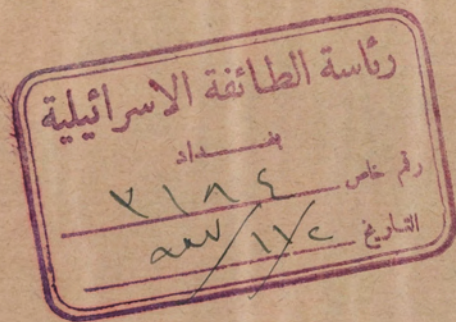 رئاسة الطائفة الاسرائيلية
بغداد
رقم خاص ٣١٨٤
التاريخ ١١/٢/